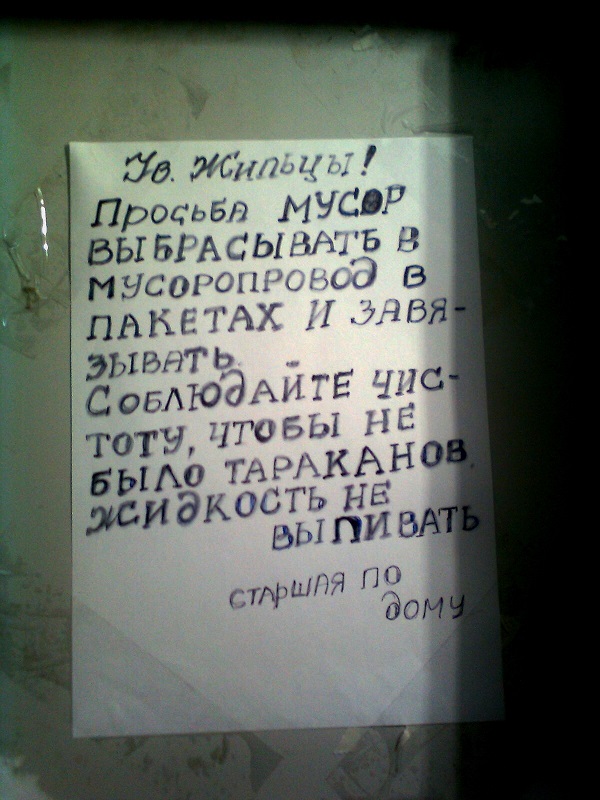 Ув. Жильцы!
Просьба МУСОР
ВЫБРАСЫВАТЬ В
МУСОРОПРОВОД В
ПАКЕТАХ И ЗАВЯ-
ЗЫВАТЬ.
СОБЛЮДАЙТЕ ЧИС-
ТОТУ, ЧТОБЫ НЕ
БЫЛО ТАРАКАНОВ.
ЖИДКОСТЬ НЕ
ВЫПИВАТЬ
СТАРШАЯ ПО
ДОМУ